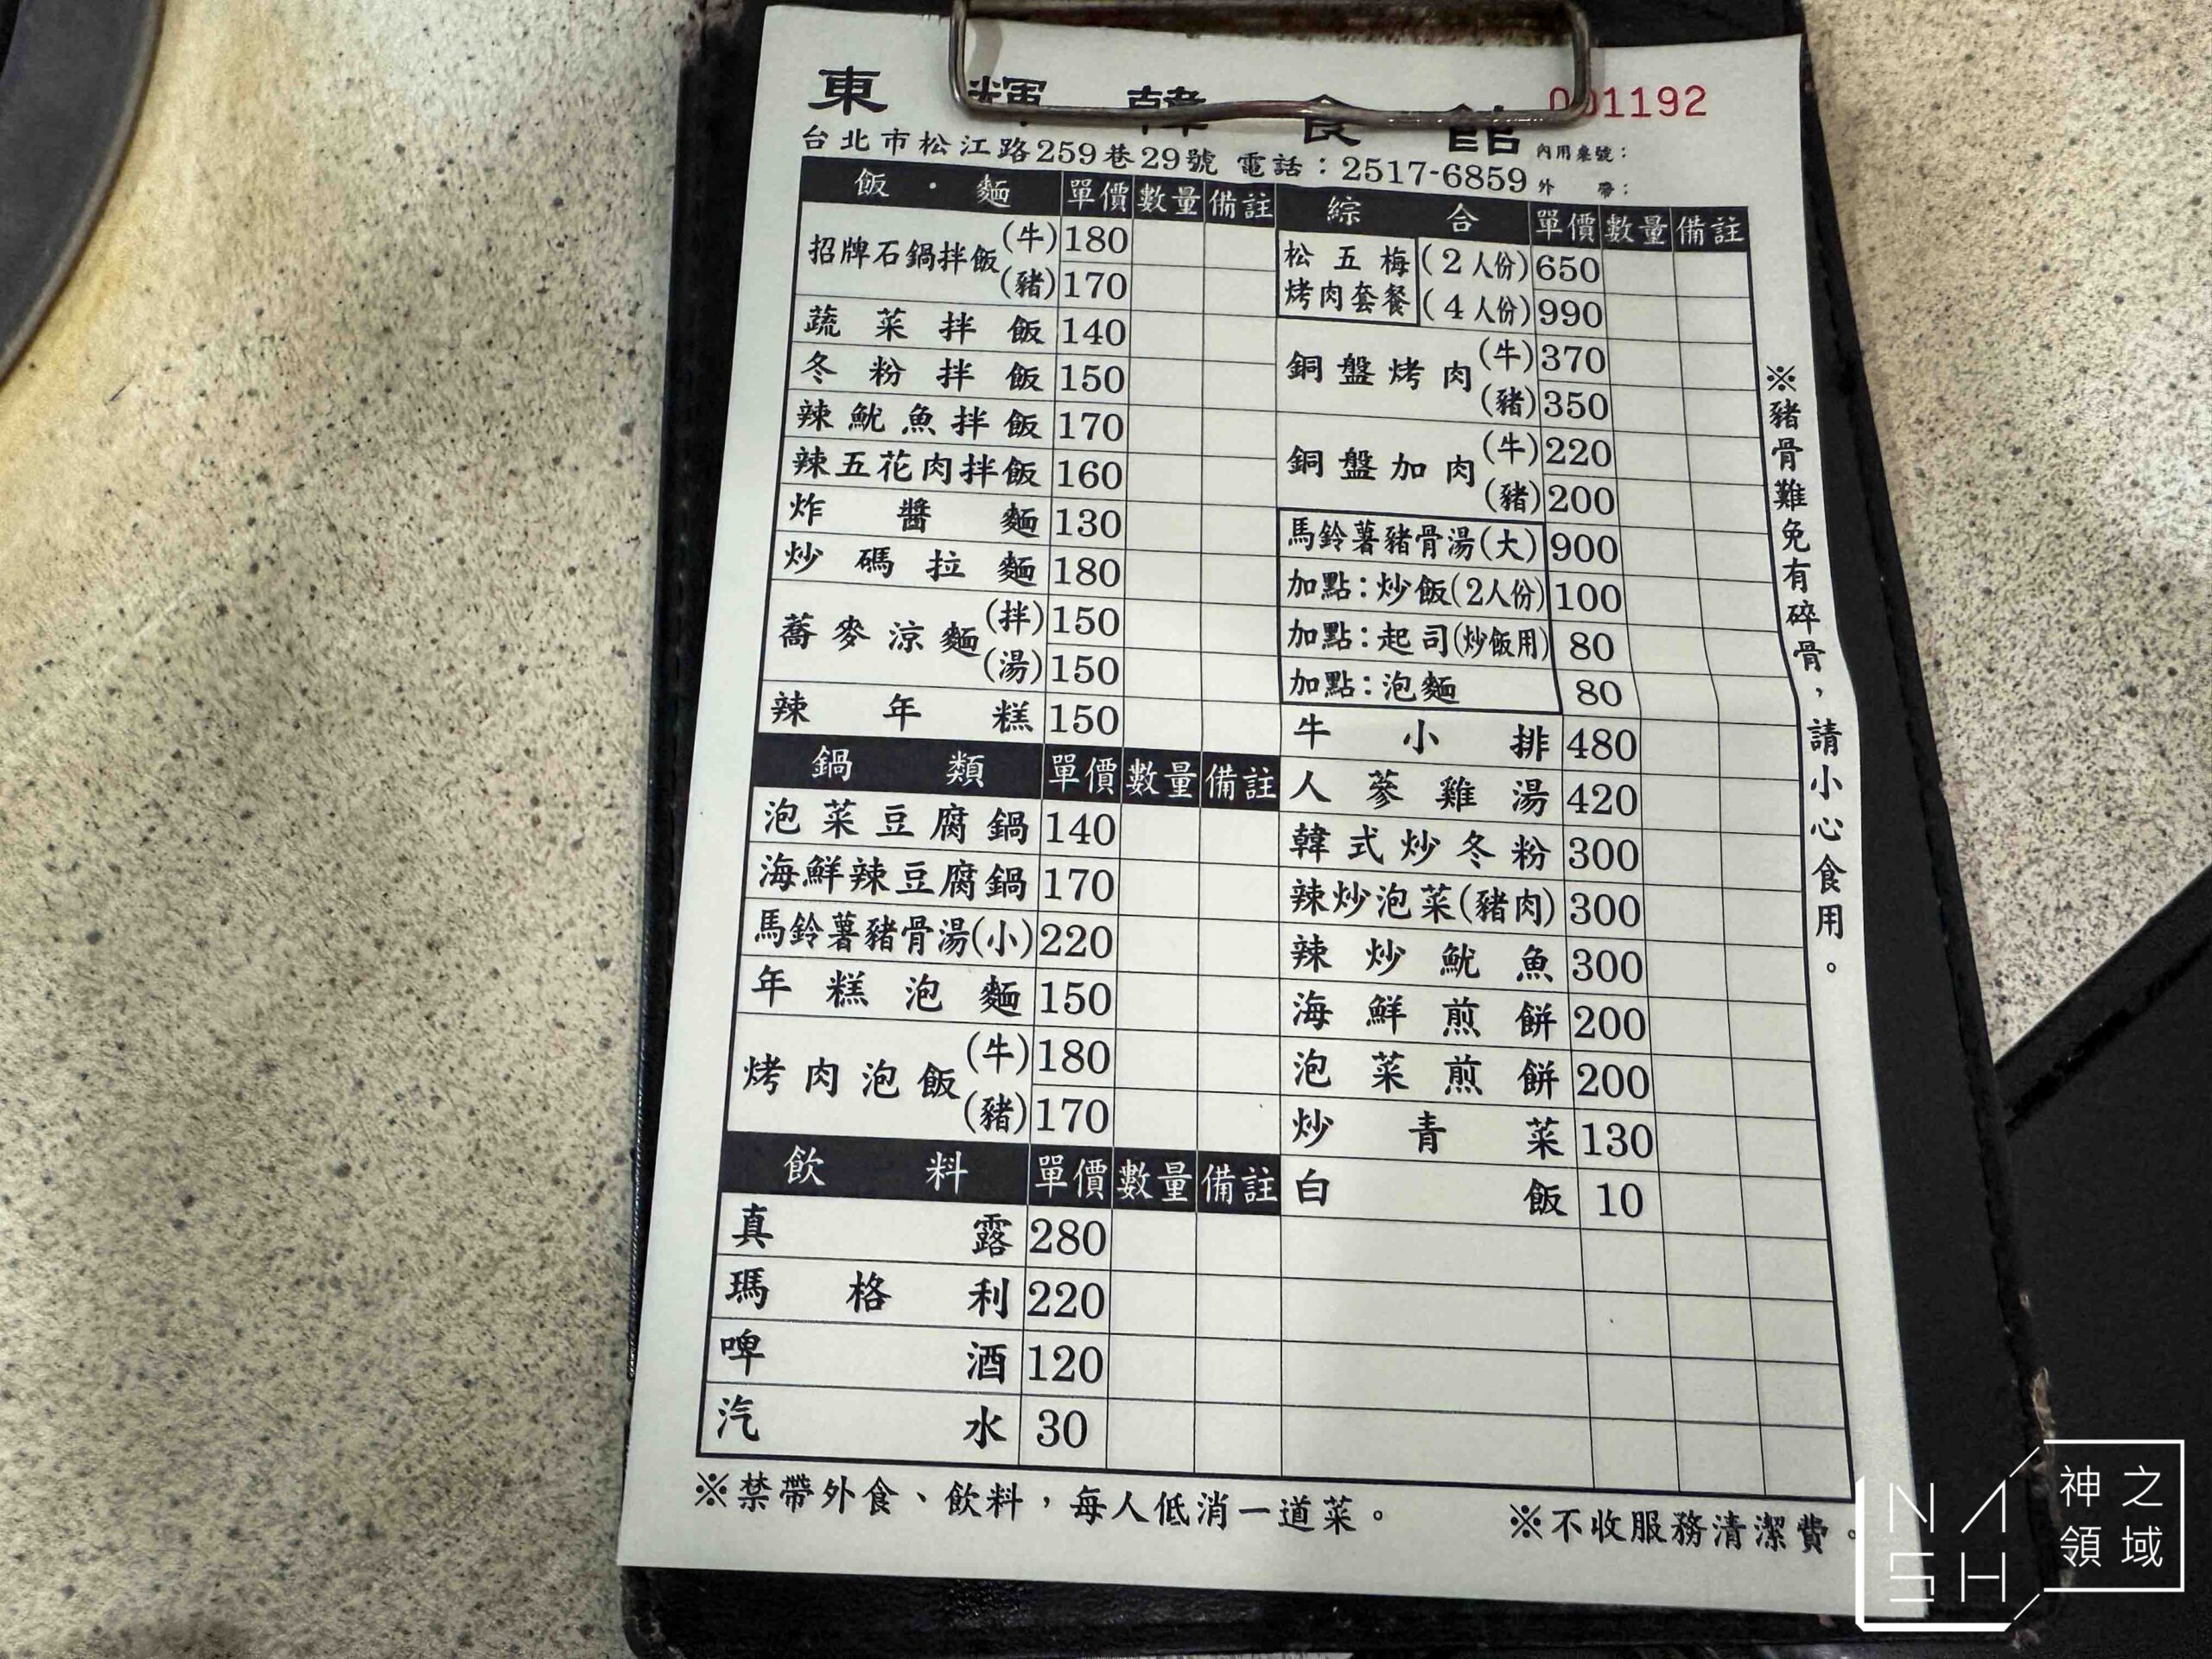 東輝韓食館
001192
台北市松江路259巷29號 電話：2517-6859
內用桌號：
外帶：
飯・麵 單價 數量 備註
招牌石鍋拌飯 (牛) 180
(豬) 170
蔬菜拌飯 140
冬粉拌飯 150
辣魷魚拌飯 170
辣五花肉拌飯 160
炸醬麵 130
炒碼拉麵 180
蕎麥涼麵 (拌) 150
(湯) 150
辣年糕 150
鍋類 單價 數量 備註
泡菜豆腐鍋 140
海鮮辣豆腐鍋 170
馬鈴薯豬骨湯(小) 220
年糕泡麵 150
烤肉泡飯 (牛) 180
(豬) 170
飲料 單價 數量 備註
真露 280
瑪格利 220
啤酒 120
汽水 30
綜合 單價 數量 備註
松五梅 (2人份) 650
烤肉套餐 (4人份) 990
銅盤烤肉 (牛) 370
(豬) 350
銅盤加肉 (牛) 220
(豬) 200
馬鈴薯豬骨湯(大) 900
加點：炒飯(2人份) 100
加點：起司(炒飯用) 80
加點：泡麵 80
牛小排 480
人蔘雞湯 420
韓式炒冬粉 300
辣炒泡菜(豬肉) 300
辣炒魷魚 300
海鮮煎餅 200
泡菜煎餅 200
炒青菜 130
白飯 10
※豬骨難免有碎骨，請小心食用。
※禁帶外食、飲料，每人低消一道菜。
※不收服務清潔費。
NASH
神之
領域